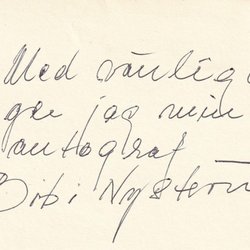 Med vänlig
ger jag min
autograf
Bibi Nyström